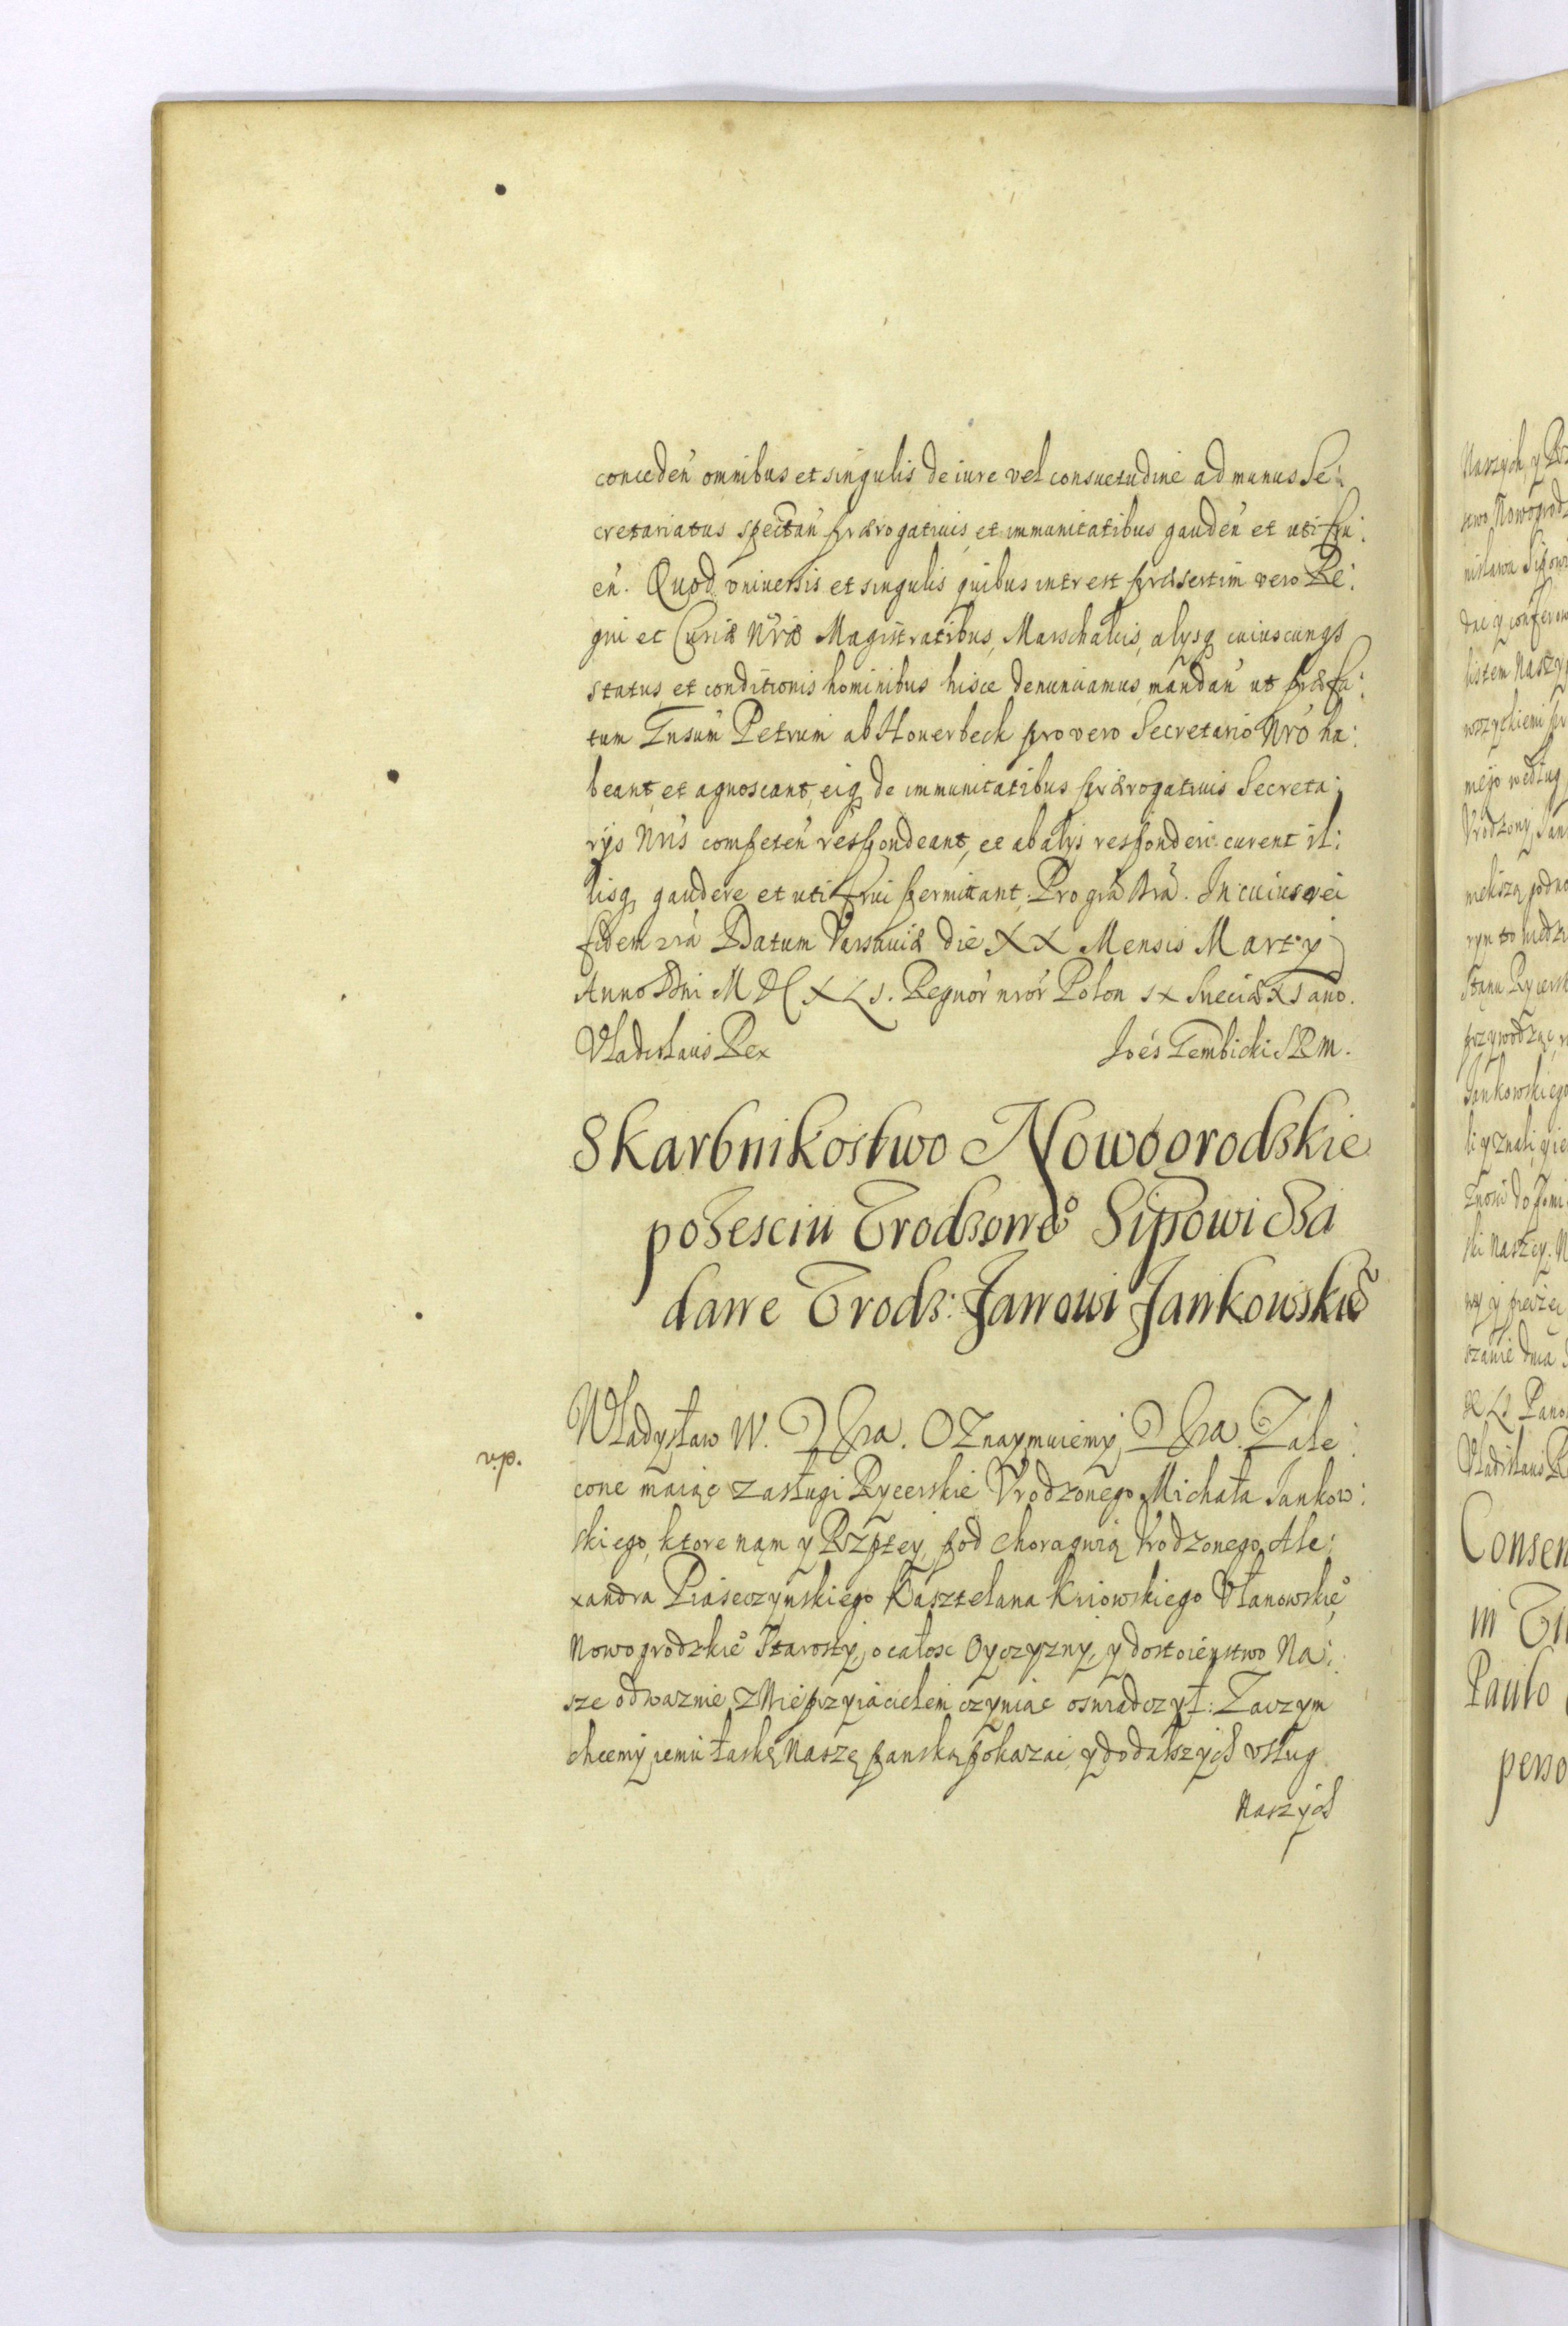 conceden̄ omnibus et singulis de iure vel consuetudine ad munus Se:
cretariatus spectan̄ prærogatiuis et immunitatibus gauden̄ et uti fru:
en̄. Quod vniuersis et singulis quibus intrest præsertim vero Re:
gni et Curiæ Nr̄æ Magistratibus, Marschalcis, alysq cuiuscunqz
status et conditionis hominibus hisce denunciamus, mandan̄ ut præfa:
tum Petrum ab Houerbeck pro vero Secretario Nr̄o ha:
beant et agnoscant, eiq de immunitatibus prærogatiuis Secreta:
rijs Nr̄is competen̄ respondeant, et ab alijs responderi curent il:
lisq gaudere et uti frui permittant. Pro gr̄a Nr̄a. In cuius rei
fidem Datum Varsauiæ die XX Mensis Martij
Anno Dn̄i M DC XLI. Regnor̄ nr̄or̄ Polon IX Sueciæ X ano.
Vladislaus Rex
Joēs Gembicki SRM.
Skarbnikostwo Nowogrodzkie
po zesciu Vrodzone° Sipowicza
dane Vrodz: Janowi Jankowskie°
Władysław IV. Oznaymuiemy Zale:
cone maiąc zasługi Rycerskie Vrodzonego Michała Jankow:
skiego, ktore nam y Rzptey, pod choragwią Vrodzonego Ale:
xandra Piaseczynskiego Kasztelana Kiiowskiego Vłanowskie°
Nowogrodzkie° Starosty, o całosc Oyczyzny, y dostoienstwo Na:
sze odwaznie z Nieprzyiacielem czyniąc oswiadczył: Zaczym
chcemy iemu łaskę Naszę panską pokazac y do dalszych vsług
Naszych
Naszych, y
stwo Nowogrodz
nisława Sipowi
listem Naszy
wszytkiemi
mego według
Stanu Rycersk
przywodząc
Jankowskiego
ski Naszey. N
Vladislaus R
Consen
in
Paulo
perso